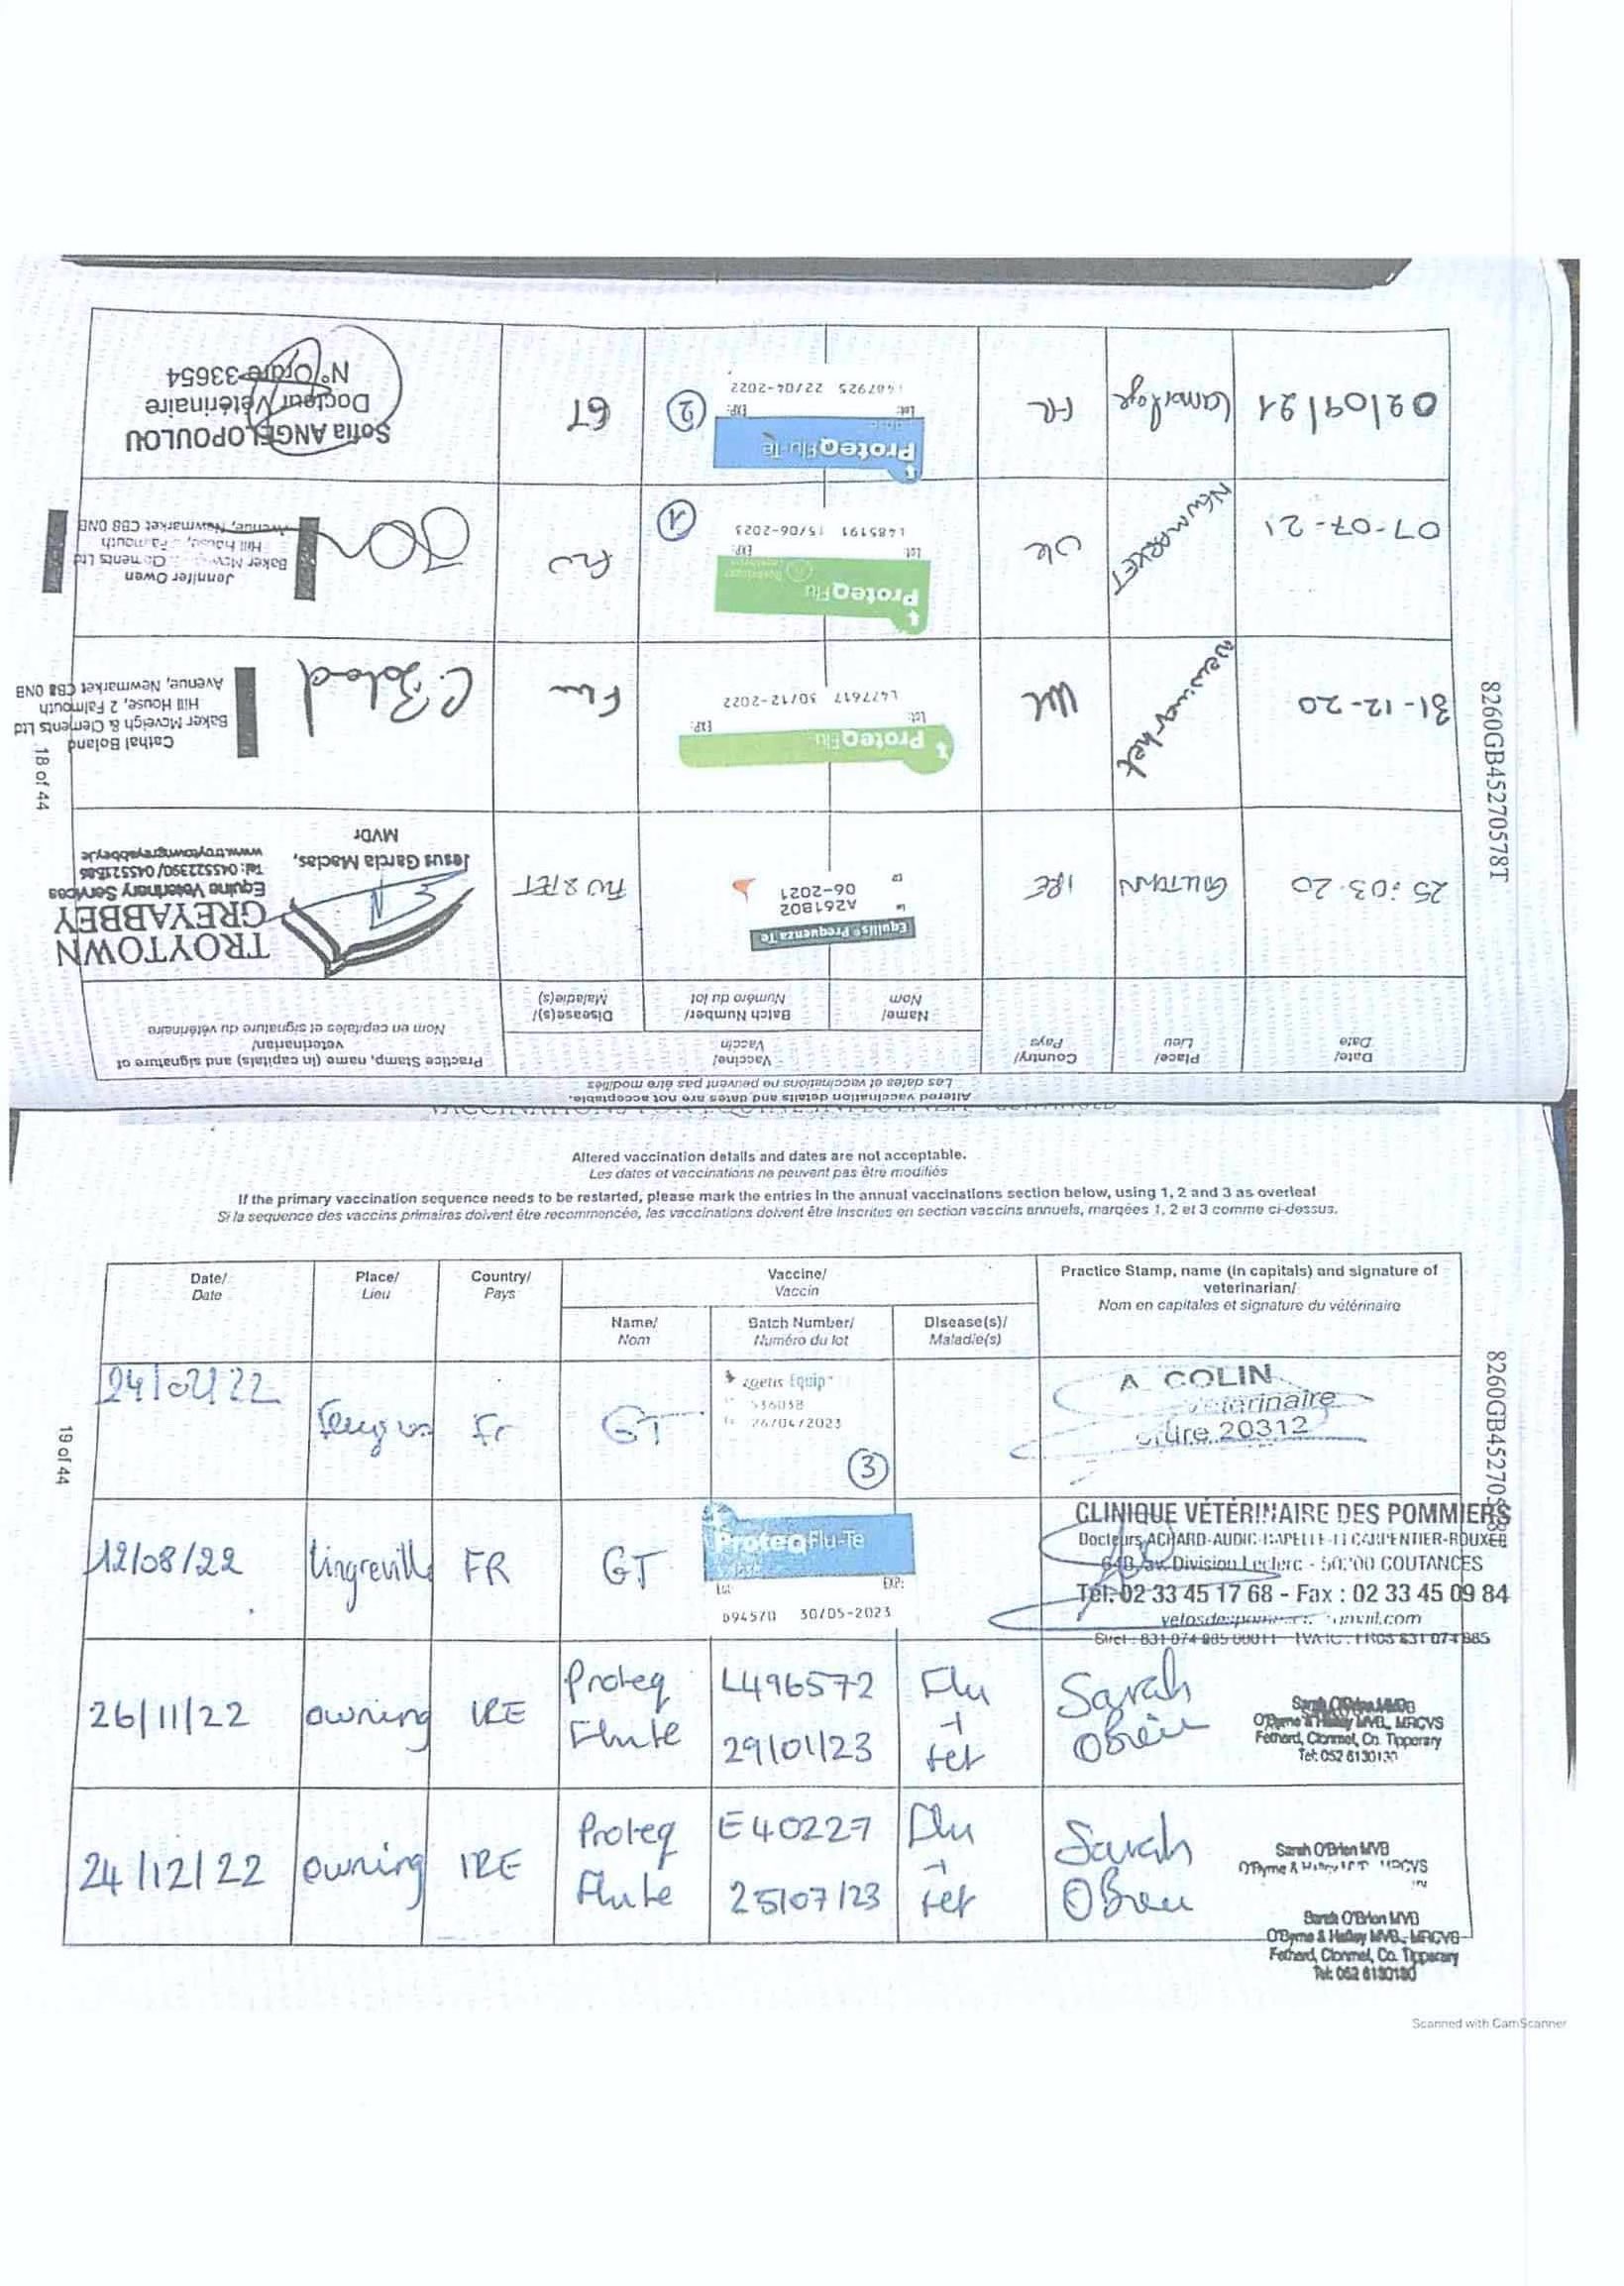 Altered vaccination details and dates are not acceptable.
Les dates et vaccinations ne peuvent pas être modifiés
Date/ Date
Place/ Lieu
Country/ Pays
Vaccine/ Vaccin
Name/ Nom
Batch Number/ Numéro du lot
Disease(s)/ Maladie(s)
Practice Stamp, name (in capitals) and signature of
veterinarian/
Nom en capitales et signature du vétérinaire
25.03.20
IRE
Equilis® Prequenza Te
A261B02
06-2021
FLU & TET
TROYTOWN
GREYABBEY
Equine Veterinary Services
Jesus Garcia Macias,
MVDr
31-12-20
Newmarket
UK
ProteqFlu
Lot: EXP:
L477617 30/12-2022
Flu
C. Boland
Cathal Boland
Baker Mcveigh & Clements Ltd
Hill House, 2 Falmouth
Avenue, Newmarket CB8 0NB
07-07-21
NEWMARKET
UK
ProteqFlu
Lot: EXP:
L485191 15/06-2023
1
FLU
Jennifer Owen
Baker Clements Ltd
Hill House, Falmouth
Avenue, Newmarket CB8 0NB
FR
ProteqFlu-Te
Lot: EXP:
22/04-2022
2
GT
Sofia ANGELOPOULOU
Docteur Vétérinaire
N° Ordre 33654
8260GB45270578T
18 of 44
Altered vaccination details and dates are not acceptable.
Les dates et vaccinations ne peuvent pas être modifiés
If the primary vaccination sequence needs to be restarted, please mark the entries in the annual vaccinations section below, using 1, 2 and 3 as overleaf
Si la sequence des vaccins primaires doivent être recommencée, les vaccinations doivent être inscrites en section vaccins annuels, marqées 1, 2 et 3 comme ci-dessus.
Date/ Date
Place/ Lieu
Country/ Pays
Vaccine/ Vaccin
Name/ Nom
Batch Number/ Numéro du lot
Disease(s)/ Maladie(s)
Practice Stamp, name (in capitals) and signature of
veterinarian/
Nom en capitales et signature du vétérinaire
24/02/22
Fr
GT
zoetis Equip
536038
26/04/2023
3
A COLIN
20312
12/08/22
Lingreville
FR
GT
ProteqFlu-Te
Lot: EXP:
30/05-2023
CLINIQUE VÉTÉRINAIRE DES POMMIERS
Division Leclerc - 50200 COUTANCES
Tél: 02 33 45 17 68 - Fax : 02 33 45 09 84
26/11/22
owning
IRE
Proteq
Flute
L496572
29/01/23
Flu
+
tet
Sarah
OBrien
O'Byrne & Halley MVB, MRCVS
Fethard, Clonmel, Co. Tipperary
Tel: 052 6130130
24/12/22
owning
IRE
Proteq
Flute
E40227
25/07/23
Flu
+
tet
Sarah
OBrien
Sarah O'Brien MVB
Sarah O'Brien MVB
O'Byrne & Halley MVB, MRCVS
Fethard, Clonmel, Co. Tipperary
Tel: 052 6130130
19 of 44
Scanned with CamScanner